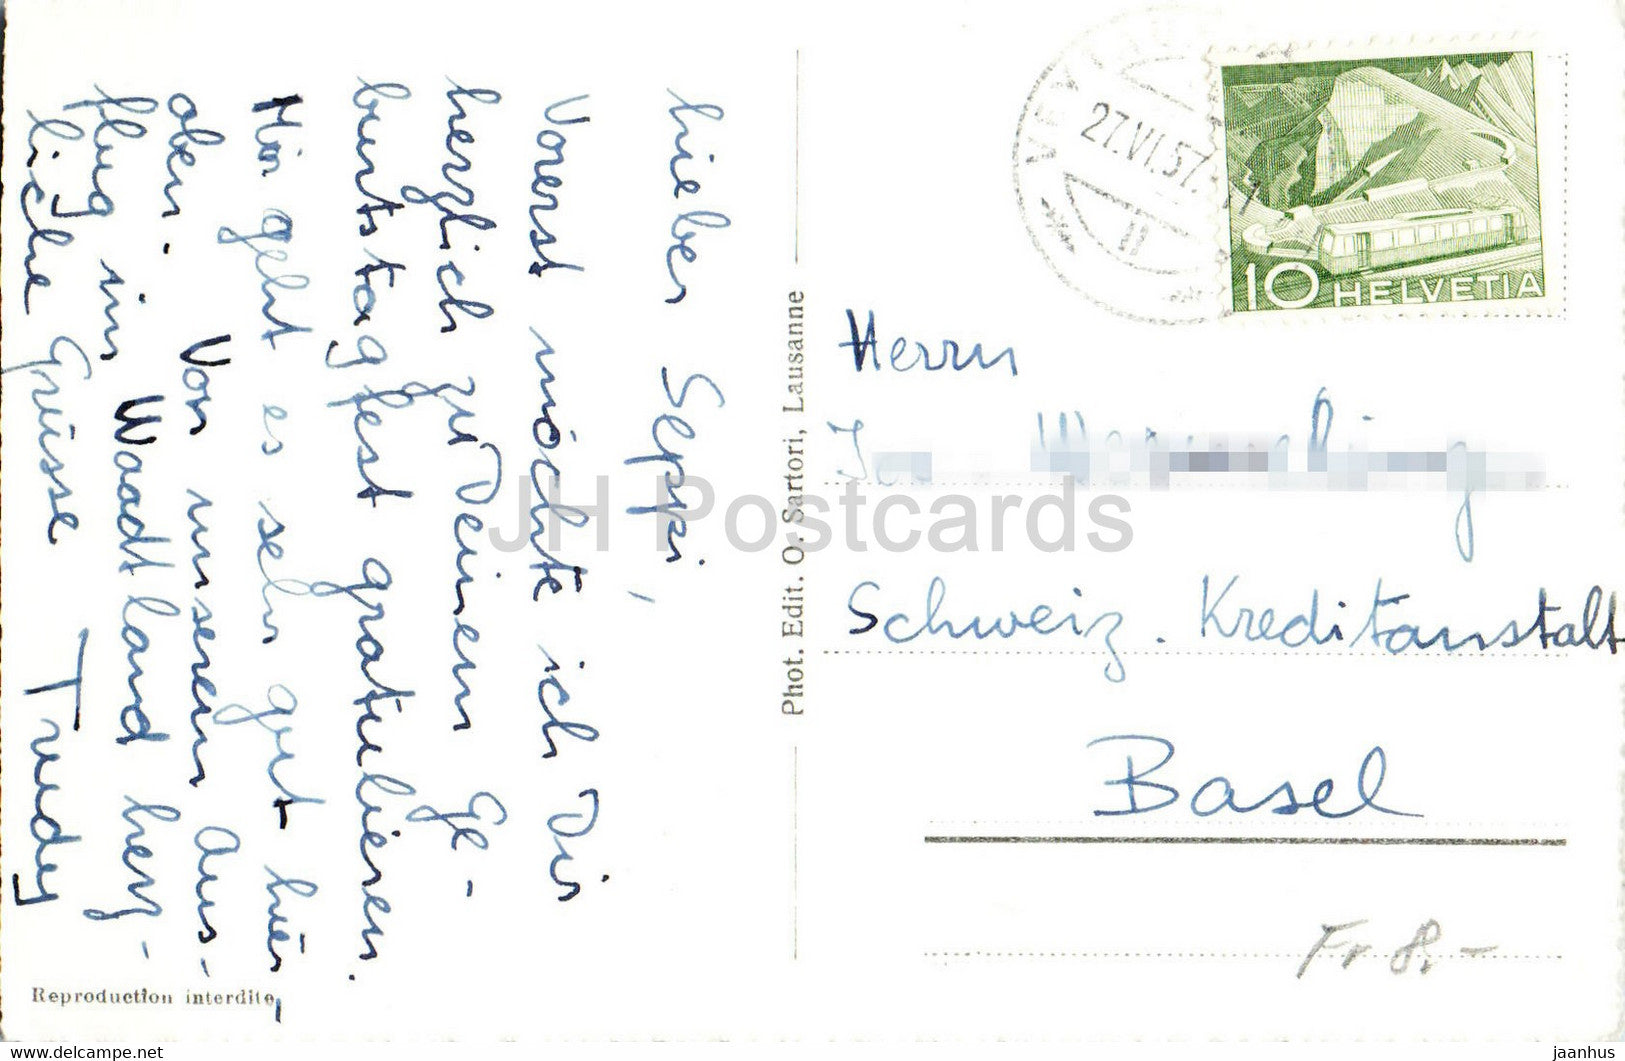 Lieber Seppi,
Vorerst möchte ich Dir
herzlich zu Deinem Ge-
burtstagfest gratulieren.
Mir geht es sehr gut hier
oben. Von unserem Aus-
flug im Waadtland herz-
liche Grüsse Trudy
Reproduction interdite
Phot. Edit. O. Sartori, Lausanne
27.VI.57
10 HELVETIA
Herrn
Schweiz. Kreditanstalt
Basel
Fr 8.-
JH Postcards
jaanhus
www.delcampe.net